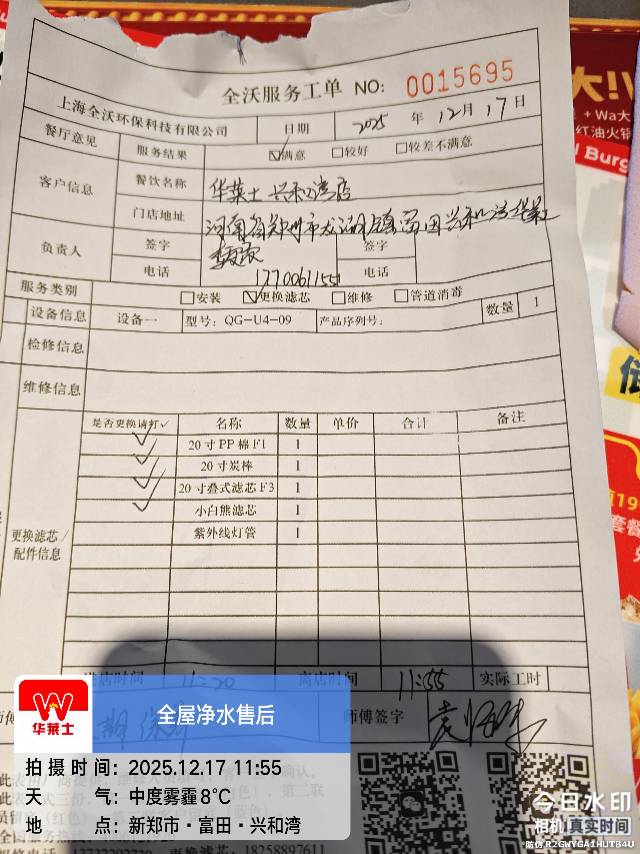 全沃服务工单 NO: 0015695
上海全沃环保科技有限公司 日期 2025 年 12 月 17 日
餐厅意见 服务结果 ☑满意 □较好 □较差不满意
客户信息 餐饮名称 华莱士 兴和湾店
门店地址 河南省郑州市龙湖镇富田兴和湾华莱士
负责人 签字 签字
电话 17700611551 电话
服务类别 □安装 ☑更换滤芯 □维修 □管道消毒
设备信息 设备一 型号: QG-U4-09 产品序列号: 数量 1
检修信息
维修信息
更换滤芯/配件信息
是否更换请打✓ 名称 数量 单价 合计 备注
✓ 20寸PP棉F1 1
✓ 20寸炭棒 1
✓ 20寸叠式滤芯F3 1
✓ 小白熊滤芯 1
紫外线灯管 1
进店时间 11:20 离店时间 11:55 实际工时
师傅签字
华莱士
全屋净水售后
拍摄时间: 2025.12.17 11:55
天气: 中度雾霾 8℃
地点: 新郑市·富田·兴和湾
18258897611
今日水印
相机 真实时间
防伪 R2GWYGA1HUTB4U
大!
+ Wa大
红油火锅
Burg